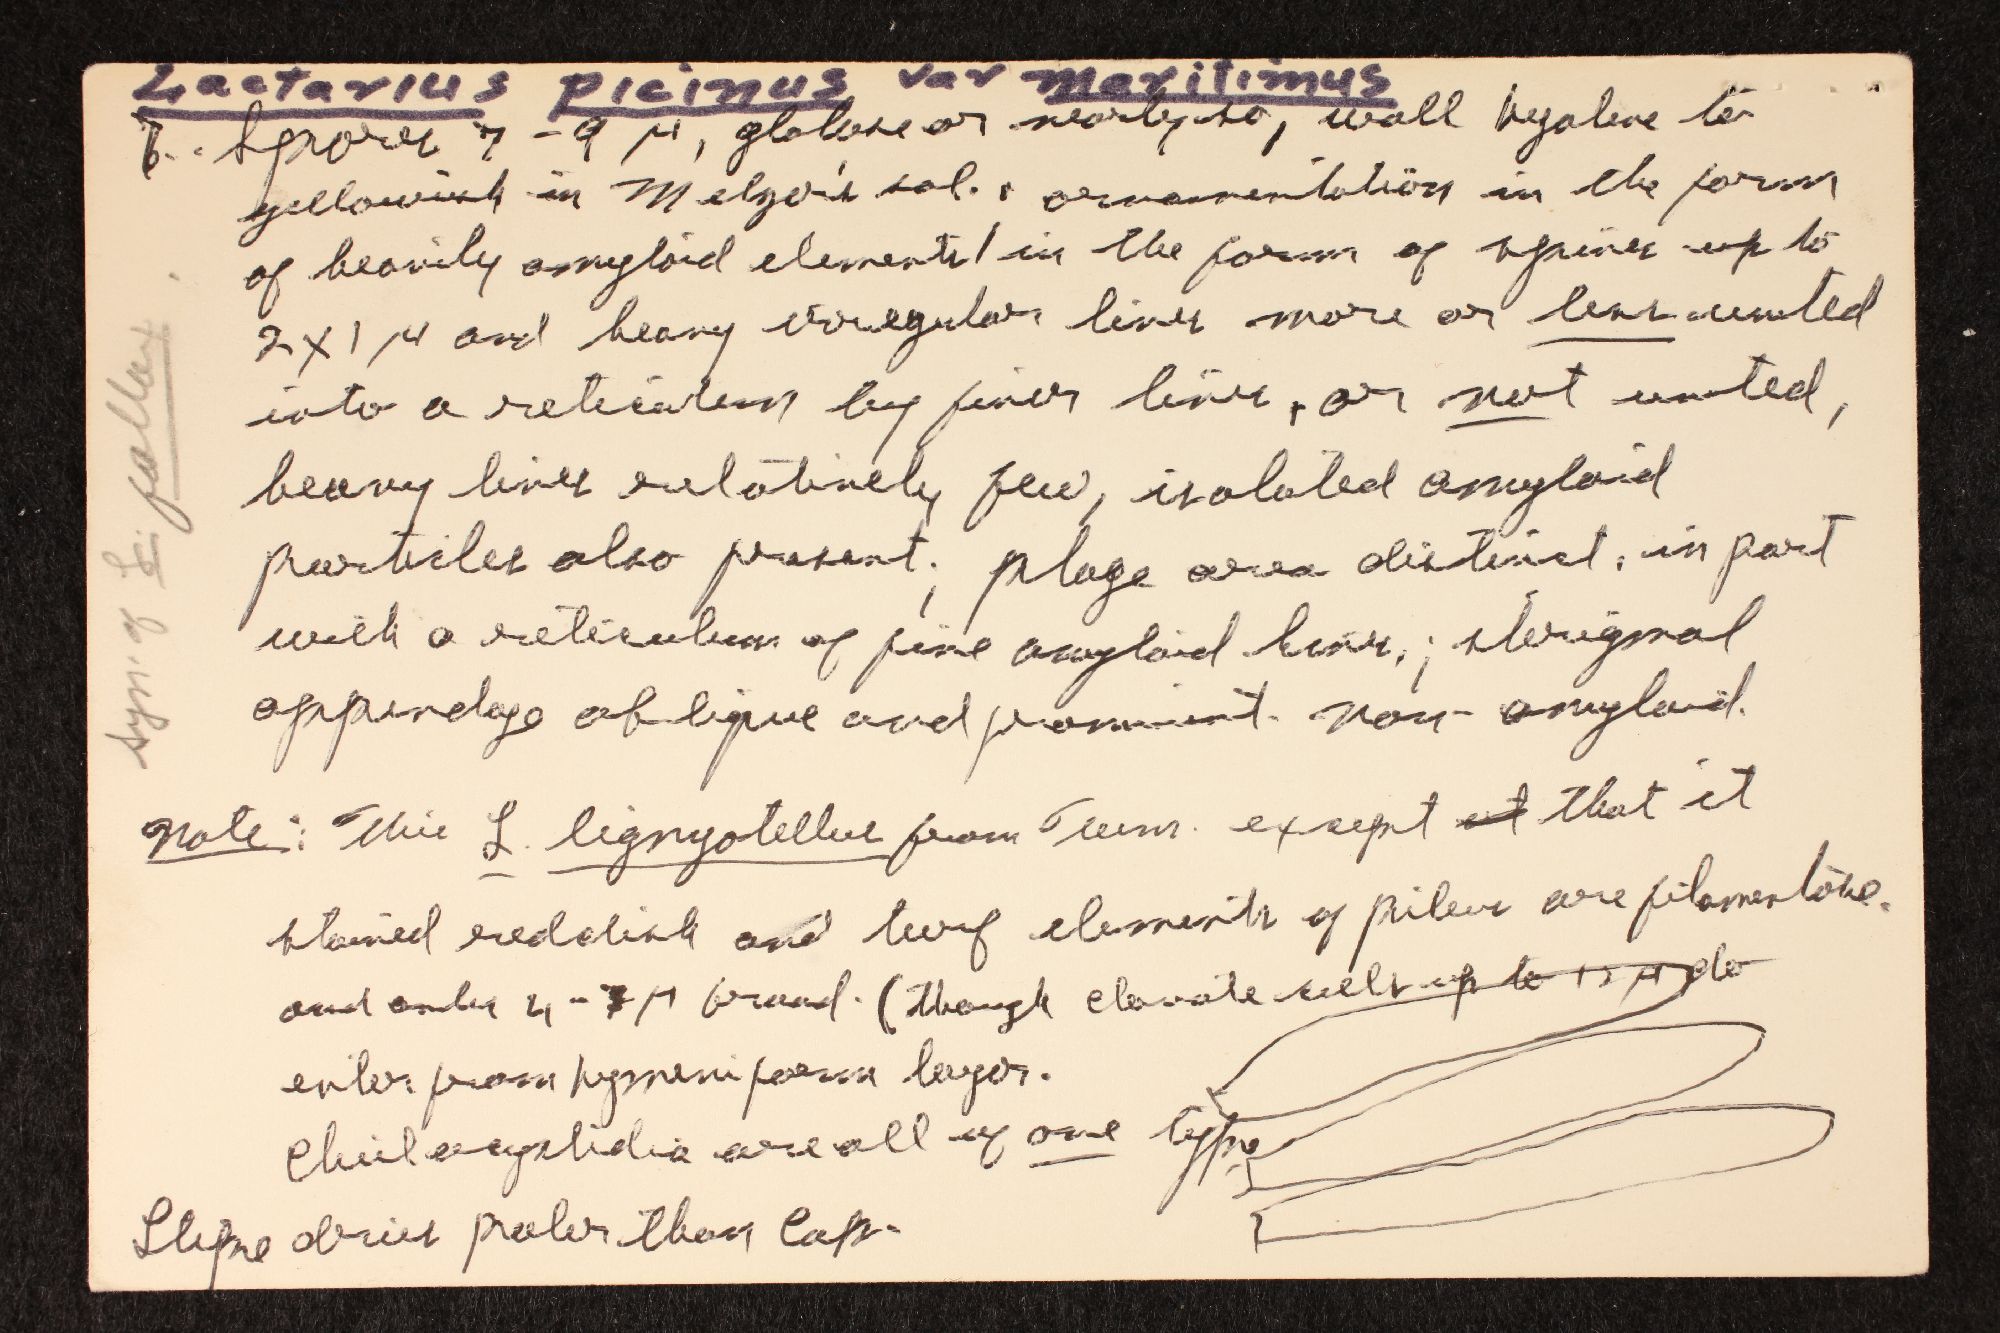 Lactarius picinus var maritimus
Spores 7-9 μ, globose or nearly so, wall hyaline to
yellowish in Melzer's sol., ornamentation in the form
of heavily amyloid elements in the form of spines up to
2x1 μ and heavy irregular lines more or less united
into a reticulum by finer lines, or not united,
heavy lines relatively few, isolated amyloid
particles also present; plage area distinct, in part
with a reticulum of fine amyloid lines,; sterigmal
appendage oblique and prominent. non-amyloid.
Note: This L. lignyotellus from Tenn. except that it
stained reddish and turf elements of pileus are filamentose.
and only 4-7 μ broad. (though clavate cells up to 12 μ do
enter from hymeniform layer.
Cheilocystidia are all of one type
Stipe dries paler than Cap.
Syn. of L. fallax.